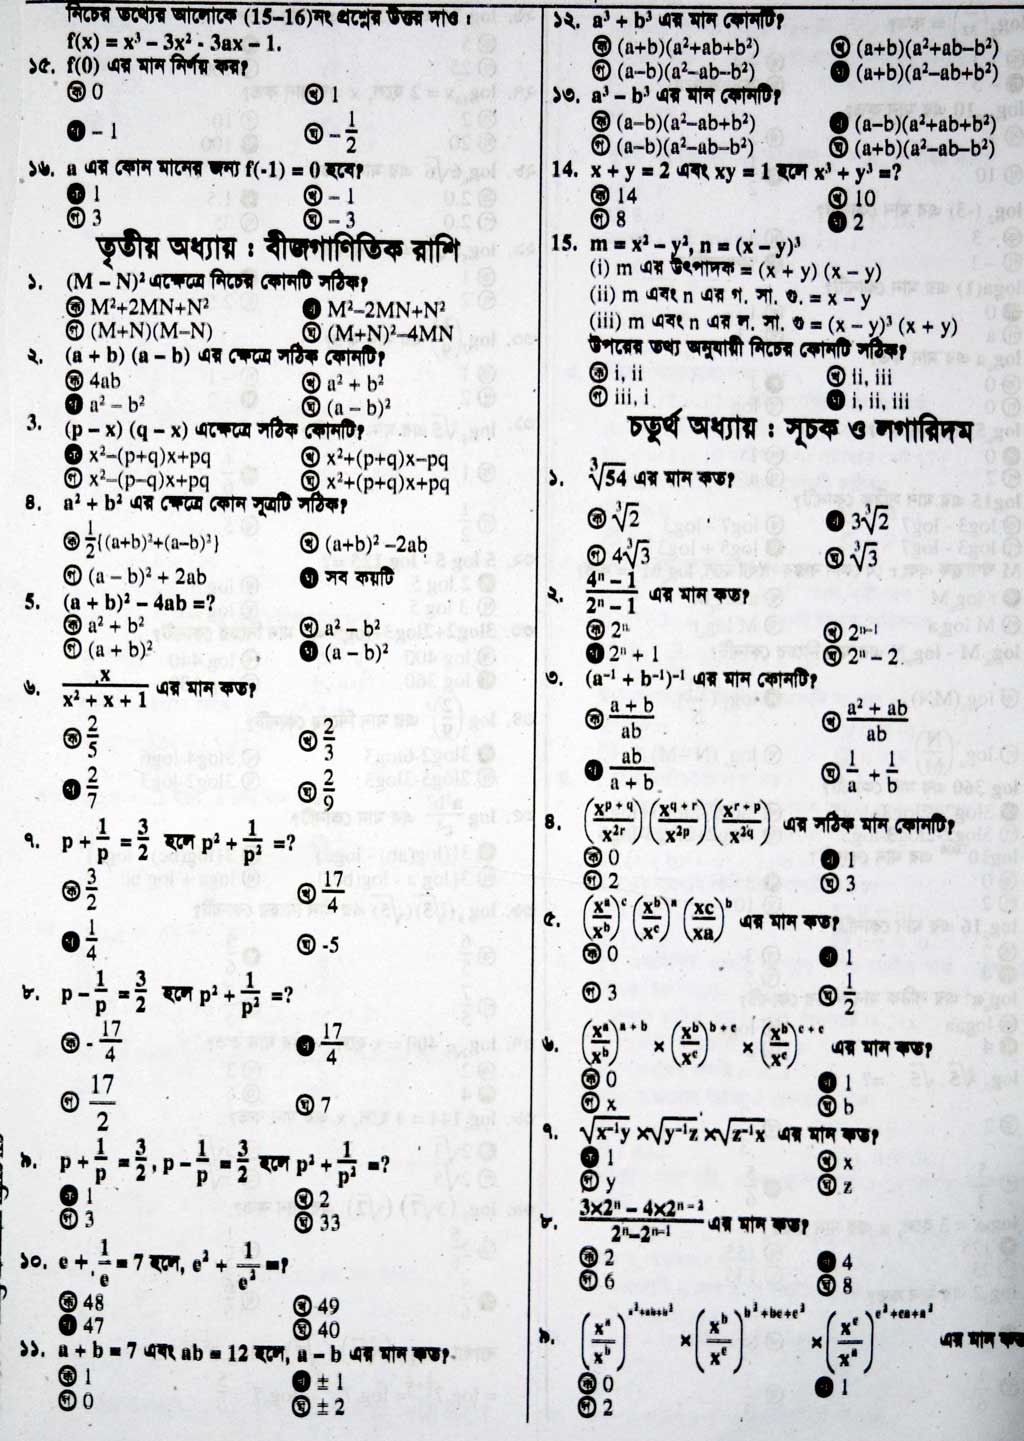 নিচের তথ্যের আলোকে (15–16)নং প্রশ্নের উত্তর দাও :
f(x) = x³ – 3x² - 3ax – 1.
১৫. f(0) এর মান নির্ণয় কর?
ক 0 খ 1
– 1 ঘ – 1/2
১৬. a এর কোন মানের জন্য f(-1) = 0 হবে?
1 খ – 1
গ 3 ঘ – 3
তৃতীয় অধ্যায় : বীজগাণিতিক রাশি
১. (M – N)² এক্ষেত্রে নিচের কোনটি সঠিক?
ক M²+2MN+N² M²–2MN+N²
গ (M+N)(M–N) ঘ (M+N)²–4MN
২. (a + b) (a – b) এর ক্ষেত্রে সঠিক কোনটি?
ক 4ab খ a² + b²
a² – b² ঘ (a – b)²
3. (p – x) (q – x) এক্ষেত্রে সঠিক কোনটি?
x²–(p+q)x+pq খ x²+(p+q)x–pq
গ x²–(p–q)x+pq ঘ x²+(p+q)x+pq
৪. a² + b² এর ক্ষেত্রে কোন সূত্রটি সঠিক?
ক 1/2{(a+b)²+(a–b)²} খ (a+b)² –2ab
গ (a – b)² + 2ab সব কয়টি
5. (a + b)² – 4ab =?
ক a² + b² খ a² – b²
গ (a + b)² (a – b)²
৬. x/(x² + x + 1) এর মান কত?
ক 2/5 খ 2/3
2/7 ঘ 2/9
৭. p + 1/p = 3/2 হলে p² + 1/p² =?
ক 3/2 খ 17/4
1/4 ঘ -5
৮. p – 1/p = 3/2 হলে p² + 1/p² =?
ক - 17/4 17/4
গ 17/2 ঘ 7
৯. p + 1/p = 3/2, p – 1/p = 3/2 হলে p² + 1/p² =?
1 খ 2
গ 3 ঘ 33
১০. e + 1/e = 7 হলে, e² + 1/e² =?
ক 48 খ 49
47 ঘ 40
১১. a + b = 7 এবং ab = 12 হলে, a – b এর মান কত?
ক 1 ± 1
গ 0 ঘ ± 2
১২. a³ + b³ এর মান কোনটি?
ক (a+b)(a²+ab+b²) খ (a+b)(a²+ab–b²)
গ (a–b)(a²–ab–b²) (a+b)(a²–ab+b²)
১৩. a³ – b³ এর মান কোনটি?
ক (a–b)(a²–ab+b²) (a–b)(a²+ab+b²)
গ (a–b)(a²–ab–b²) ঘ (a+b)(a²–ab–b²)
14. x + y = 2 এবং xy = 1 হলে x³ + y³ =?
ক 14 খ 10
গ 8 2
15. m = x² – y², n = (x – y)³
(i) m এর উৎপাদক = (x + y) (x – y)
(ii) m এবং n এর গ. সা. গু. = x – y
(iii) m এবং n এর ল. সা. গু = (x – y)³ (x + y)
উপরের তথ্য অনুযায়ী নিচের কোনটি সঠিক?
ক i, ii খ ii, iii
গ iii, i i, ii, iii
চতুর্থ অধ্যায় : সূচক ও লগারিদম
১. ³√54 এর মান কত?
ক ³√2 3³√2
গ 4³√3 ঘ ³√3
২. (4ⁿ – 1)/(2ⁿ – 1) এর মান কত?
ক 2ⁿ খ 2ⁿ⁻¹
2ⁿ + 1 ঘ 2ⁿ – 2
৩. (a⁻¹ + b⁻¹)⁻¹ এর মান কোনটি?
ক (a + b)/ab খ (a² + ab)/ab
ab/(a + b) ঘ 1/a + 1/b
৪. (x^(p + q)/x^(2r)) (x^(q + r)/x^(2p)) (x^(r + p)/x^(2q)) এর সঠিক মান কোনটি?
ক 0 1
গ 2 ঘ 3
৫. (x^a/x^b)^c (x^b/x^c)^a (xc/xa)^b এর মান কত?
ক 0 1
গ 3 ঘ 1/2
৬. (x^a/x^b)^(a + b) × (x^b/x^c)^(b + c) × (x^b/x^c)^(c + c) এর মান কত?
ক 0 1
গ x ঘ b
৭. √(x⁻¹y) ×√(y⁻¹z) ×√(z⁻¹x) এর মান কত?
1 খ x
গ y ঘ z
৮. (3×2ⁿ – 4×2ⁿ⁻²)/(2ⁿ–2ⁿ⁻¹) এর মান কত?
ক 2 4
গ 6 ঘ 8
৯. (x^a/x^b)^(a²+ab+b²) × (x^b/x^c)^(b²+bc+c²) × (x^c/x^a)^(c²+ca+a²) এর মান কত
ক 0 1
গ 2